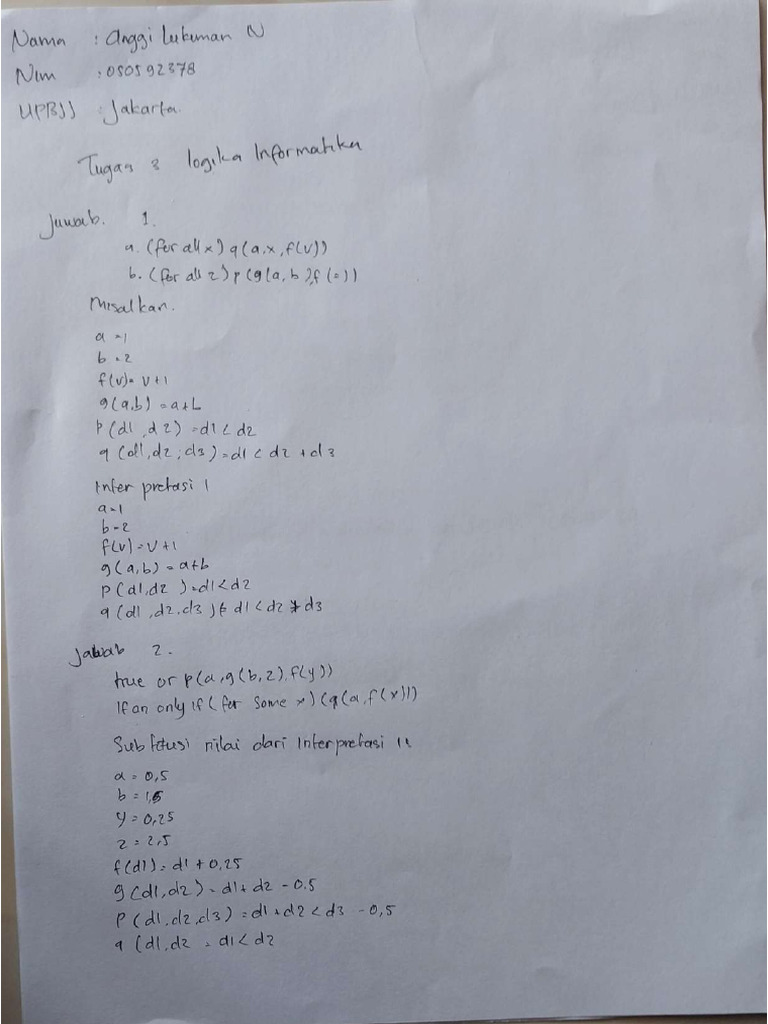 Nama : Anggi Lukman N
Nim : 050592378
UPBJJ : Jakarta.
Tugas 3 logika Informatika
Jawab. 1.
a. (for all x) q(a,x,f(v))
b. (for all z) p(g(a,b),f(z))
Misalkan.
a = 1
b = 2
f(v) = v+1
g(a,b) = a+b
p(d1,d2) = d1 < d2
q(d1,d2,d3) = d1 < d2 + d3
Interpretasi 1
a=1
b=2
f(v) = v+1
g(a,b) = a+b
p(d1,d2) = d1<d2
q(d1,d2,d3) d1 < d2 d3
Jawab 2.
true or p(a,g(b,z),f(y))
If an only if (for some x)(q(a,f(x)))
nilai dari Interpretasi 11
a = 0,5
b =
y = 0,25
z = 2,5
f(d1) = d1 + 0,25
g(d1,d2) = d1+d2 - 0.5
P(d1,d2,d3) = d1+d2 < d3 - 0,5
q(d1,d2 = d1< d2